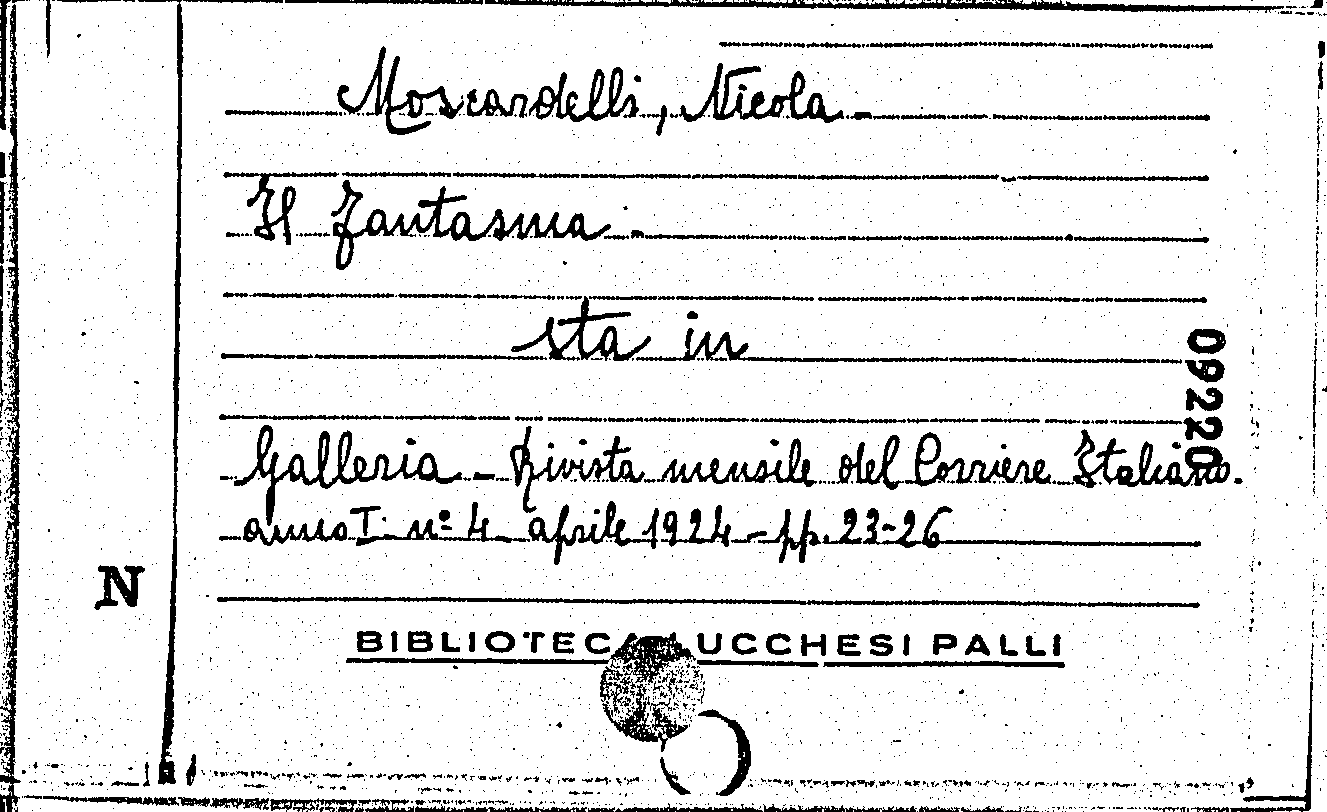 Moscardelli, Nicola.-
Il Fantasma.-
sta in
09220
Galleria - Rivista mensile del Corriere Italiano.
anno I- nº 4- aprile 1924 - pp. 23-26
N
BIBLIOTECA LUCCHESI PALLI